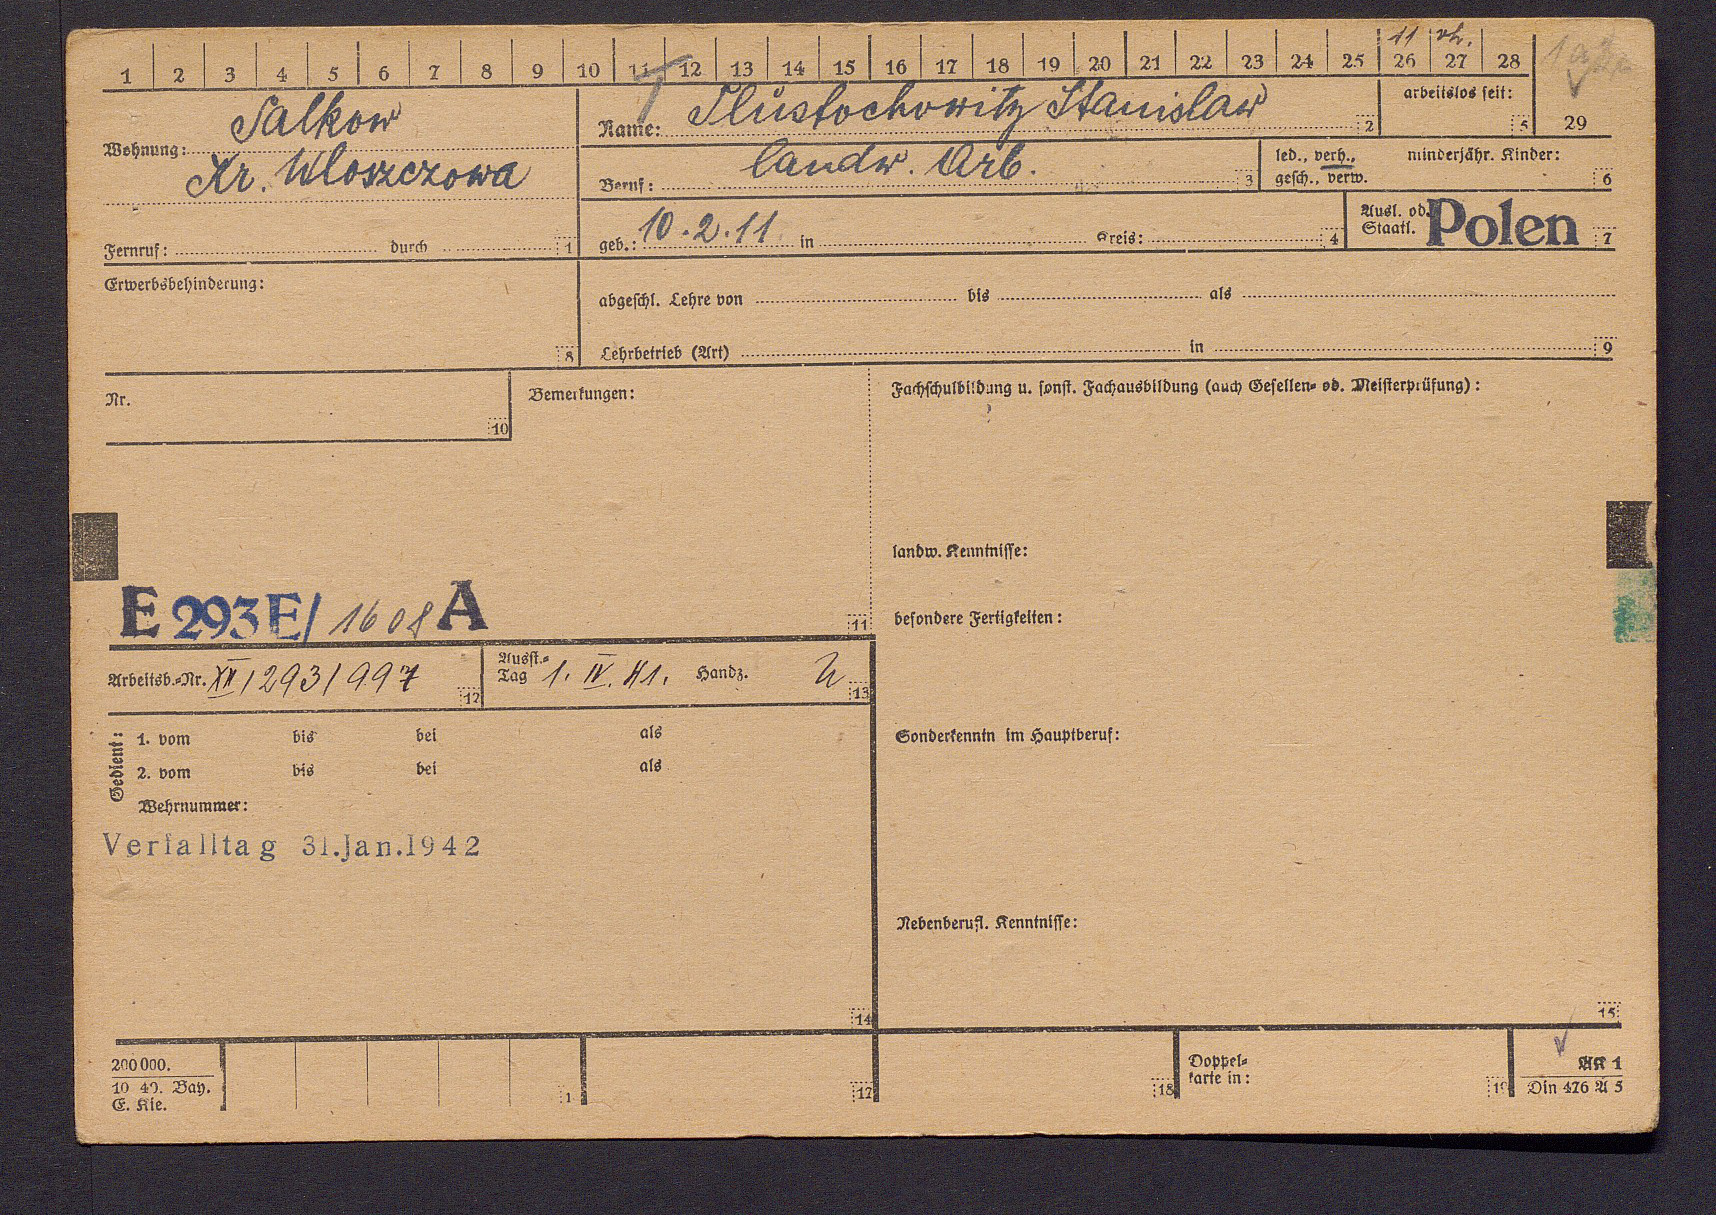 11 vh.
1 2 3 4 5 6 7 8 9 10 11 12 13 14 15 16 17 18 19 20 21 22 23 24 25 26 27 28
Wohnung: Salkow
Kr. Wloszczowa
Fernruf: durch 1
Name: Tlustochowitz Stanislaw 2
arbeitslos seit: 5
29
Beruf: landw. Arb. 3
led., verh., minderjähr. Kinder:
gesch., verw. 6
geb.: 10.2.11 in Kreis: 4
Ausl. od. Polen
Staatl. 7
Erwerbsbehinderung:
8
abgeschl. Lehre von bis als
Lehrbetrieb (Art) in 9
Nr.
10
Bemerkungen:
Fachschulbildung u. sonst. Fachausbildung (auch Gesellen- od. Meisterprüfung):
landw. Kenntnisse:
besondere Fertigkeiten:
E 293 E/ 1608 A
11
Arbeitsb.-Nr. XII/293/997 12
Ausst.-
Tag 1. IV. 41. Handz. 13
Gedient:
1. vom bis bei als
2. vom bis bei als
Wehrnummer:
Verfalltag 31.Jan.1942
14
Sonderkenntn im Hauptberuf:
Nebenberufl. Kenntnisse:
15
200 000.
10 40. Bay.
E. Kie.
1
17
18
Doppel-
karte in:
19
AK 1
Din 476 A 5